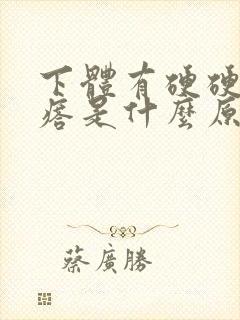 下體有硬硬
痞是什麼原
蔡廣勝